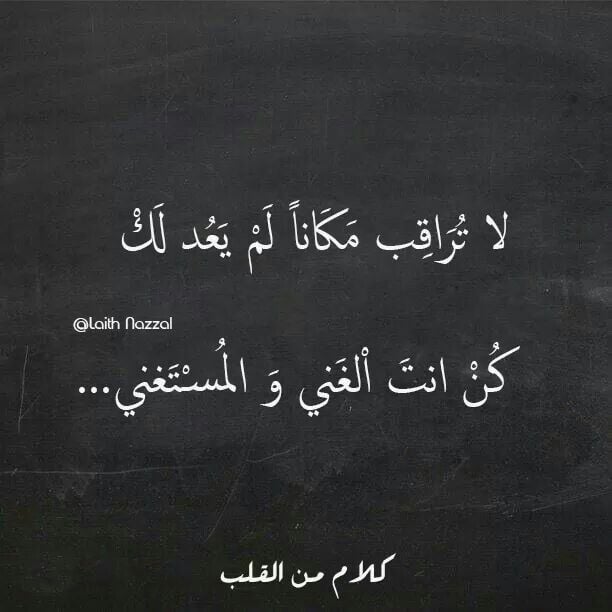 لا تُرَاقِب مَكَاناً لَمْ يَعُد لَكْ
@Laith Nazzal
كُنْ انتَ اْلغَني وَ المُستَغني...
كلام من القلب